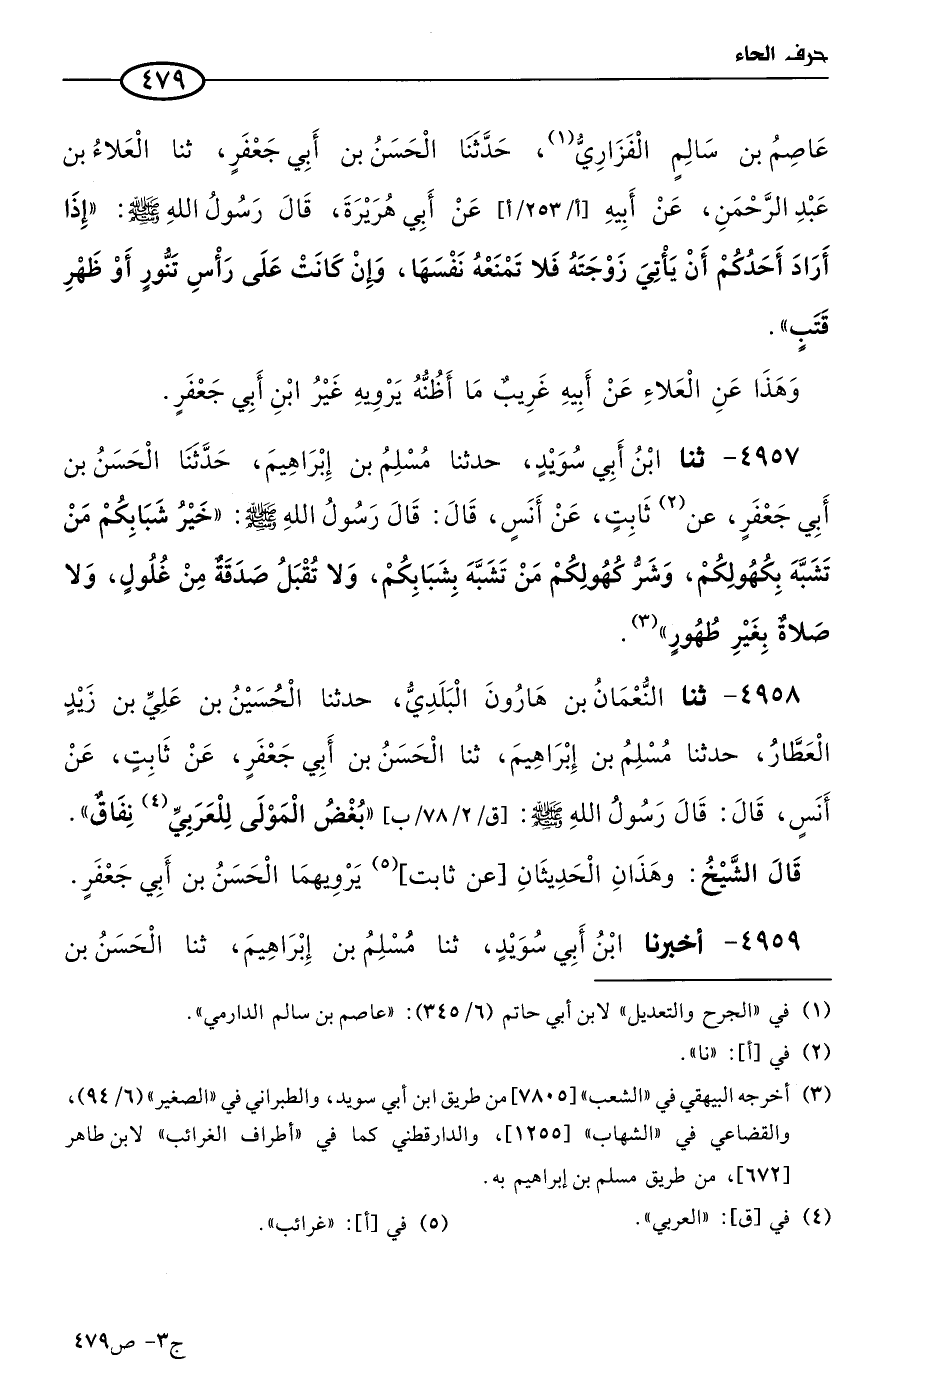 حرف الحاء
٤٧٩
عَاصِمُ بن سَالِمٍ الْفَزَارِيُّ(١)، حَدَّثَنَا الْحَسَنُ بن أَبِي جَعْفَرٍ، ثنا الْعَلاءُ بن
عَبْدِ الرَّحْمَنِ، عَنْ أَبِيهِ [أ/٢٥٣/أ] عَنْ أَبِي هُرَيْرَةَ، قَالَ رَسُولُ اللهِ ﷺ: «إِذَا
أَرَادَ أَحَدُكُمْ أَنْ يَأْتِيَ زَوْجَتَهُ فَلا تَمْنَعْهُ نَفْسَهَا، وَإِنْ كَانَتْ عَلَى رَأْسِ تَنُّورٍ أَوْ ظَهْرِ
قَتَبٍ».
وَهَذَا عَنِ الْعَلاءِ عَنْ أَبِيهِ غَرِيبٌ مَا أَظُنُّهُ يَرْوِيهِ غَيْرُ ابْنِ أَبِي جَعْفَرٍ.
٤٩٥٧- ثنا ابْنُ أَبِي سُوَيْدٍ، حدثنا مُسْلِمُ بن إِبْرَاهِيمَ، حَدَّثَنَا الْحَسَنُ بن
أَبِي جَعْفَرٍ، عن(٢) ثَابِتٍ، عَنْ أَنَسٍ، قَالَ: قَالَ رَسُولُ اللهِ ﷺ: «خَيْرُ شَبَابِكُمْ مَنْ
تَشَبَّهَ بِكُهُولِكُمْ، وَشَرُّ كُهُولِكُمْ مَنْ تَشَبَّهَ بِشَبَابِكُمْ، وَلا تُقْبَلُ صَدَقَةٌ مِنْ غُلُولٍ، وَلا
صَلاةٌ بِغَيْرِ طُهُورٍ»(٣).
٤٩٥٨- ثنا النُّعْمَانُ بن هَارُونَ الْبَلَدِيُّ، حدثنا الْحُسَيْنُ بن عَلِيِّ بن زَيْدٍ
الْعَطَّارُ، حدثنا مُسْلِمُ بن إِبْرَاهِيمَ، ثنا الْحَسَنُ بن أَبِي جَعْفَرٍ، عَنْ ثَابِتٍ، عَنْ
أَنَسٍ، قَالَ: قَالَ رَسُولُ اللهِ ﷺ: [ق/٢/٧٨/ب] «بُغْضُ الْمَوْلَى لِلْعَرَبِيِّ(٤) نِفَاقٌ».
قَالَ الشَّيْخُ: وهَذَانِ الْحَدِيثَانِ [عن ثابت](٥) يَرْوِيهِمَا الْحَسَنُ بن أَبِي جَعْفَرٍ.
٤٩٥٩- أخبرنا ابْنُ أَبِي سُوَيْدٍ، ثنا مُسْلِمُ بن إِبْرَاهِيمَ، ثنا الْحَسَنُ بن
(١) في «الجرح والتعديل» لابن أبي حاتم (٦/٣٤٥): «عاصم بن سالم الدارمي».
(٢) في [أ]: «نا».
(٣) أخرجه البيهقي في «الشعب» [٧٨٠٥] من طريق ابن أبي سويد، والطبراني في «الصغير» (٦/٩٤)،
والقضاعي في «الشهاب» [١٢٥٥]، والدارقطني كما في «أطراف الغرائب» لابن طاهر
[٦٧٢]، من طريق مسلم بن إبراهيم به.
(٤) في [ق]: «العربي». (٥) في [أ]: «غرائب».
ج٣- ص٤٧٩